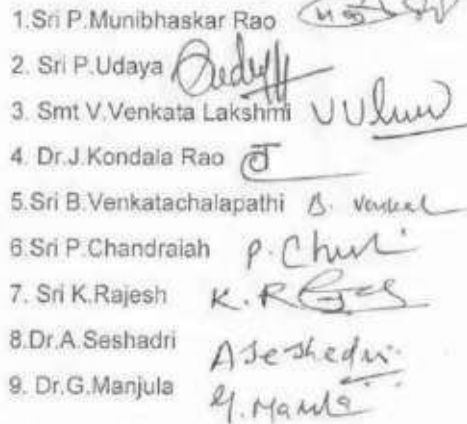 1.Sri P.Munibhaskar Rao
2. Sri P.Udaya
3. Smt V.Venkata Lakshmi
4. Dr.J.Kondala Rao
5.Sri B.Venkatachalapathi B.
6.Sri P.Chandraiah P.
7. Sri K.Rajesh K. R
8.Dr.A.Seshadri A Seshadri
9. Dr.G.Manjula